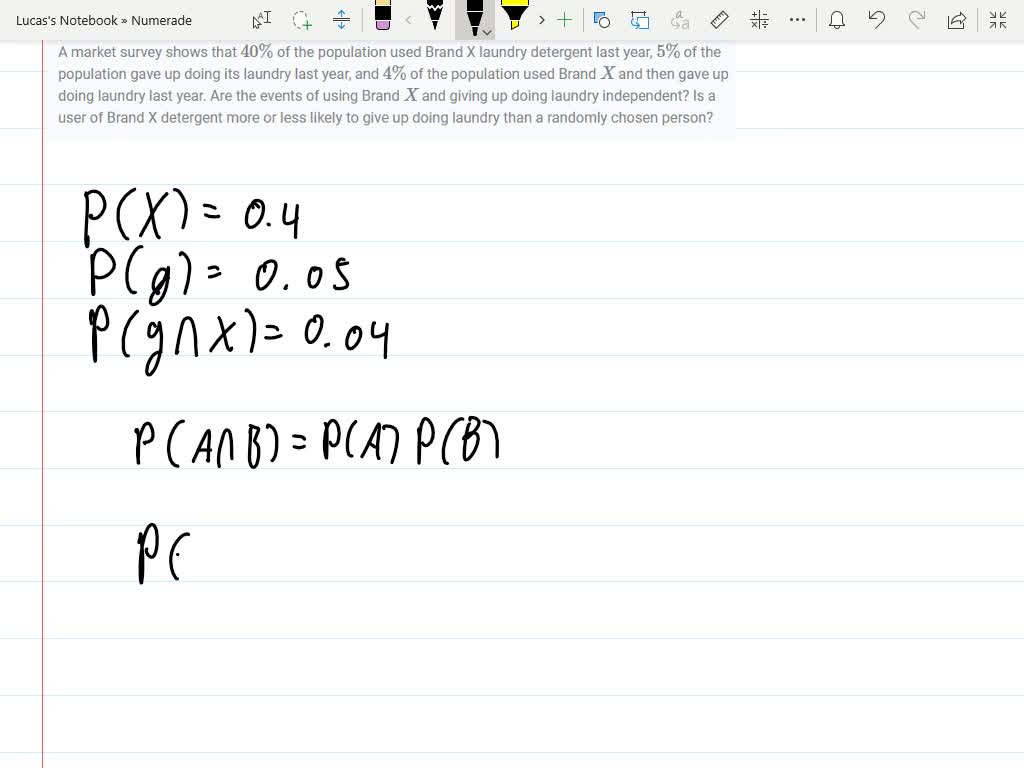 Lucas's Notebook » Numerade
A market survey shows that 40% of the population used Brand X laundry detergent last year, 5% of the
population gave up doing its laundry last year, and 4% of the population used Brand X and then gave up
doing laundry last year. Are the events of using Brand X and giving up doing laundry independent? Is a
user of Brand X detergent more or less likely to give up doing laundry than a randomly chosen person?
P(X) = 0.4
P(g) = 0.05
P(g∩X) = 0.04
P(A∩B) = P(A) P(B)
P(